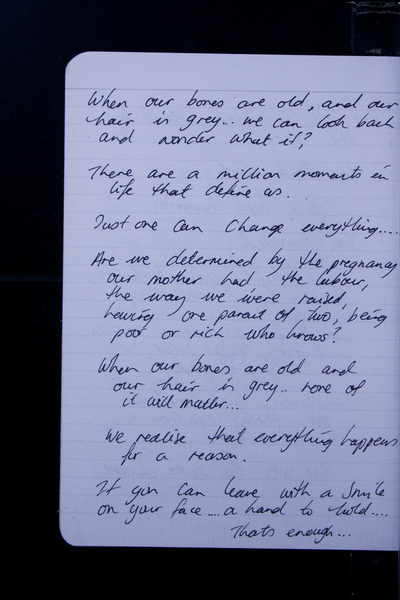 When our bones are old, and our
hair is grey... we can look back
and wonder what if?
There are a million moments in
life that define us.
Just one can change everything....
Are we determined by the pregnancy
our mother had, the labour,
the way we were raised,
having one parent of two, being
poor or rich who knows?
When our bones are old and
our hair is grey.. none of
it will matter...
We realise that everything happens
for a reason.
If you can leave with a smile
on your face.... a hand to hold....
Thats enough...